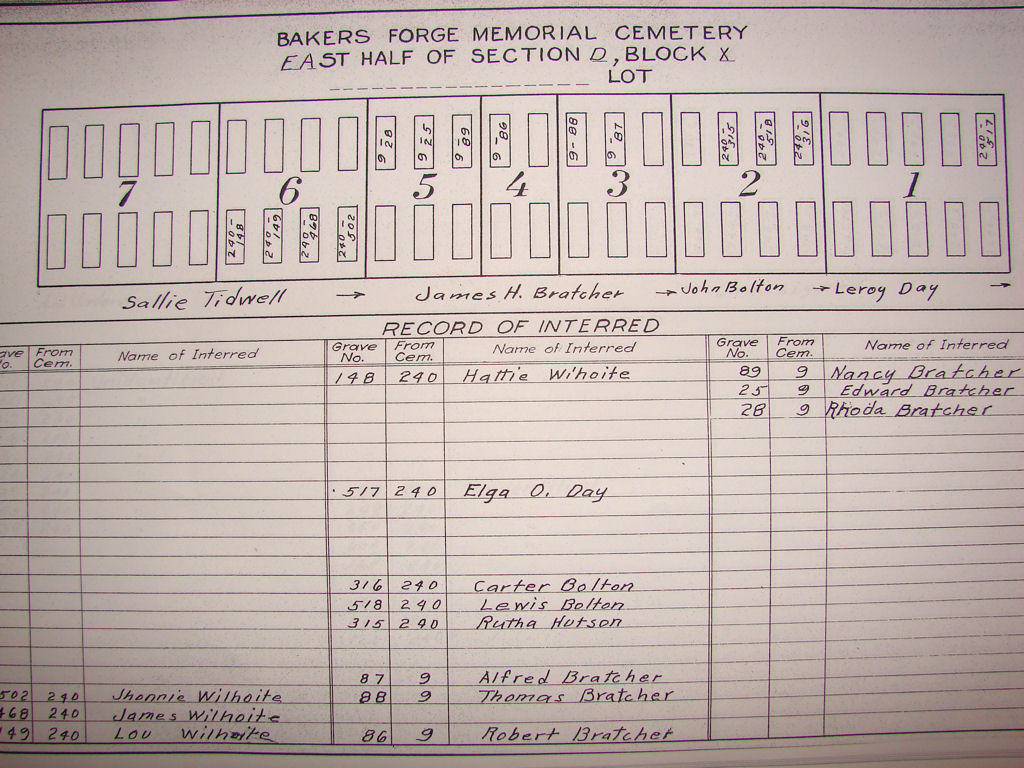 BAKERS FORGE MEMORIAL CEMETERY
EAST HALF OF SECTION D, BLOCK X
LOT
9-28 9-25 9-89 9-86 9-88 9-87 240-315 240-518 240-316 240-517
7 6 5 4 3 2 1
240-148 240-149 240-468 240-502
Sallie Tidwell → James H. Bratcher → John Bolton → Leroy Day →
RECORD OF INTERRED
ave No. From Cem. Name of Interred Grave No. From Cem. Name of Interred Grave No. From Cem. Name of Interred
148 240 Hattie Wilhoite 89 9 Nancy Bratcher
25 9 Edward Bratcher
28 9 Rhoda Bratcher
517 240 Elga O. Day
316 240 Carter Bolton
518 240 Lewis Bolton
315 240 Rutha Hutson
87 9 Alfred Bratcher
502 240 Jhonnie Wilhoite 88 9 Thomas Bratcher
468 240 James Wilhoite
149 240 Lou Wilhoite 86 9 Robert Bratcher